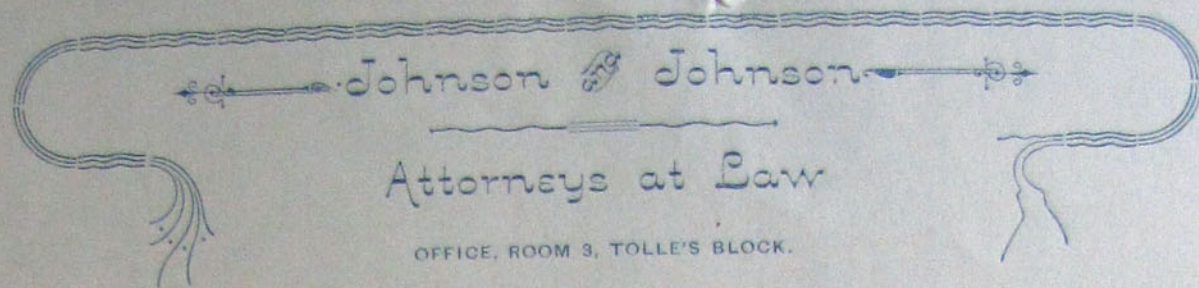 Johnson and Johnson
Attorneys at Law
OFFICE, ROOM 3, TOLLE'S BLOCK.